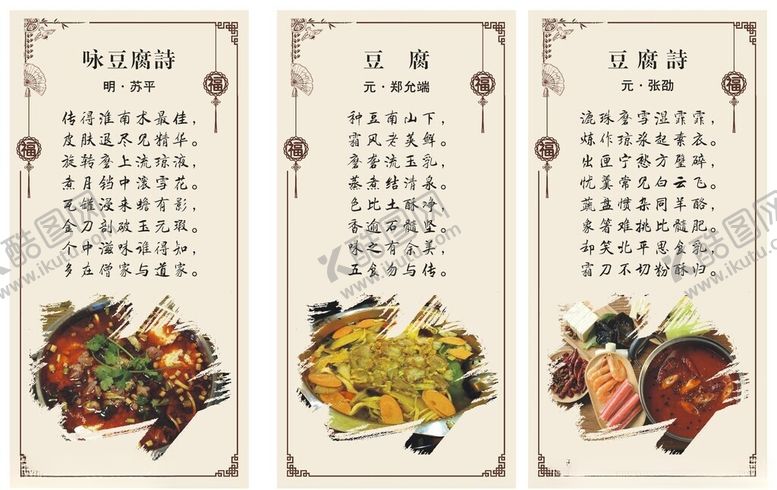 咏豆腐詩
明·苏平
传得淮南术最佳，
皮肤退尽见精华。
旋转磨上流琼液，
煮月铛中滚雪花。
瓦罐浸来蟾有影，
金刀剖破玉无瑕。
个中滋味谁得知，
多在僧家与道家。
豆 腐
元·郑允端
种豆南山下，
霜风老荚鲜。
磨砻流玉乳，
蒸煮结清泉。
色比土酥净，
香逾石髓坚。
味之有余美，
五食勿与传。
豆腐詩
元·张劭
漉珠磨雪湿霏霏，
炼作琼浆起素衣。
出匣宁愁方璧碎，
忧羹常见白云飞。
蔬盘惯杂同羊酪，
象箸难挑比髓肥。
却笑北平思食乳，
霜刀不切粉酥归。
福
福
福
福
酷图网
www.ikutu.com
酷图网
www.ikutu.com
酷图网
www.ikutu.com